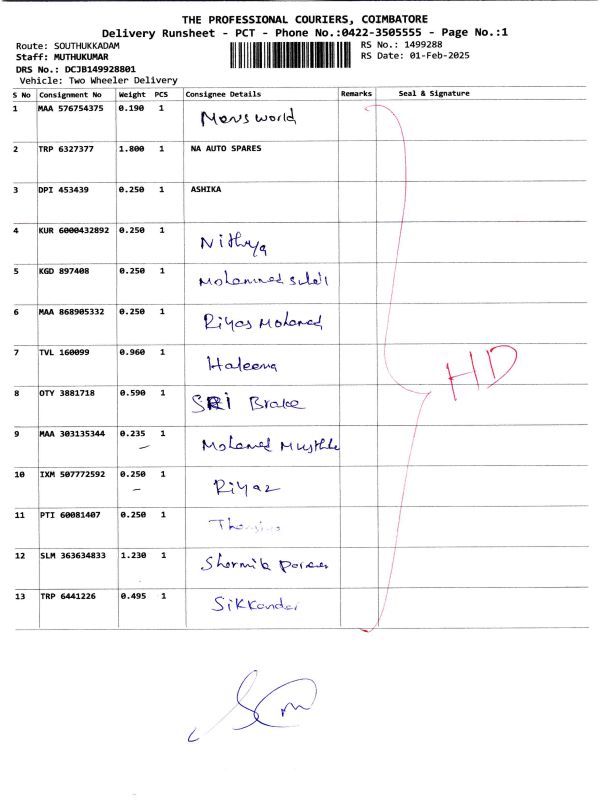 THE PROFESSIONAL COURIERS, COIMBATORE
Delivery Runsheet - PCT - Phone No.:0422-3505555 - Page No.:1
Route: SOUTHUKKADAM RS No.: 1499288
Staff: MUTHUKUMAR RS Date: 01-Feb-2025
DRS No.: DCJB149928801
Vehicle: Two Wheeler Delivery
S No Consignment No Weight PCS Consignee Details Remarks Seal & Signature
1 MAA 576754375 0.190 1 Mens world
2 TRP 6327377 1.800 1 NA AUTO SPARES
3 DPI 453439 0.250 1 ASHIKA
4 KUR 6000432892 0.250 1 Nithya
5 KGD 897408 0.250 1 Mohammed
6 MAA 868905332 0.250 1 Riyas Mohamed
7 TVL 160099 0.960 1 Haleena
HD
8 OTY 3881718 0.590 1 SRI Brake
9 MAA 303135344 0.235 1 Mohamed
10 IXM 507772592 0.250 1 Riyaz
11 PTI 60081407 0.250 1
12 SLM 363634833 1.230 1
13 TRP 6441226 0.495 1 Sikkander